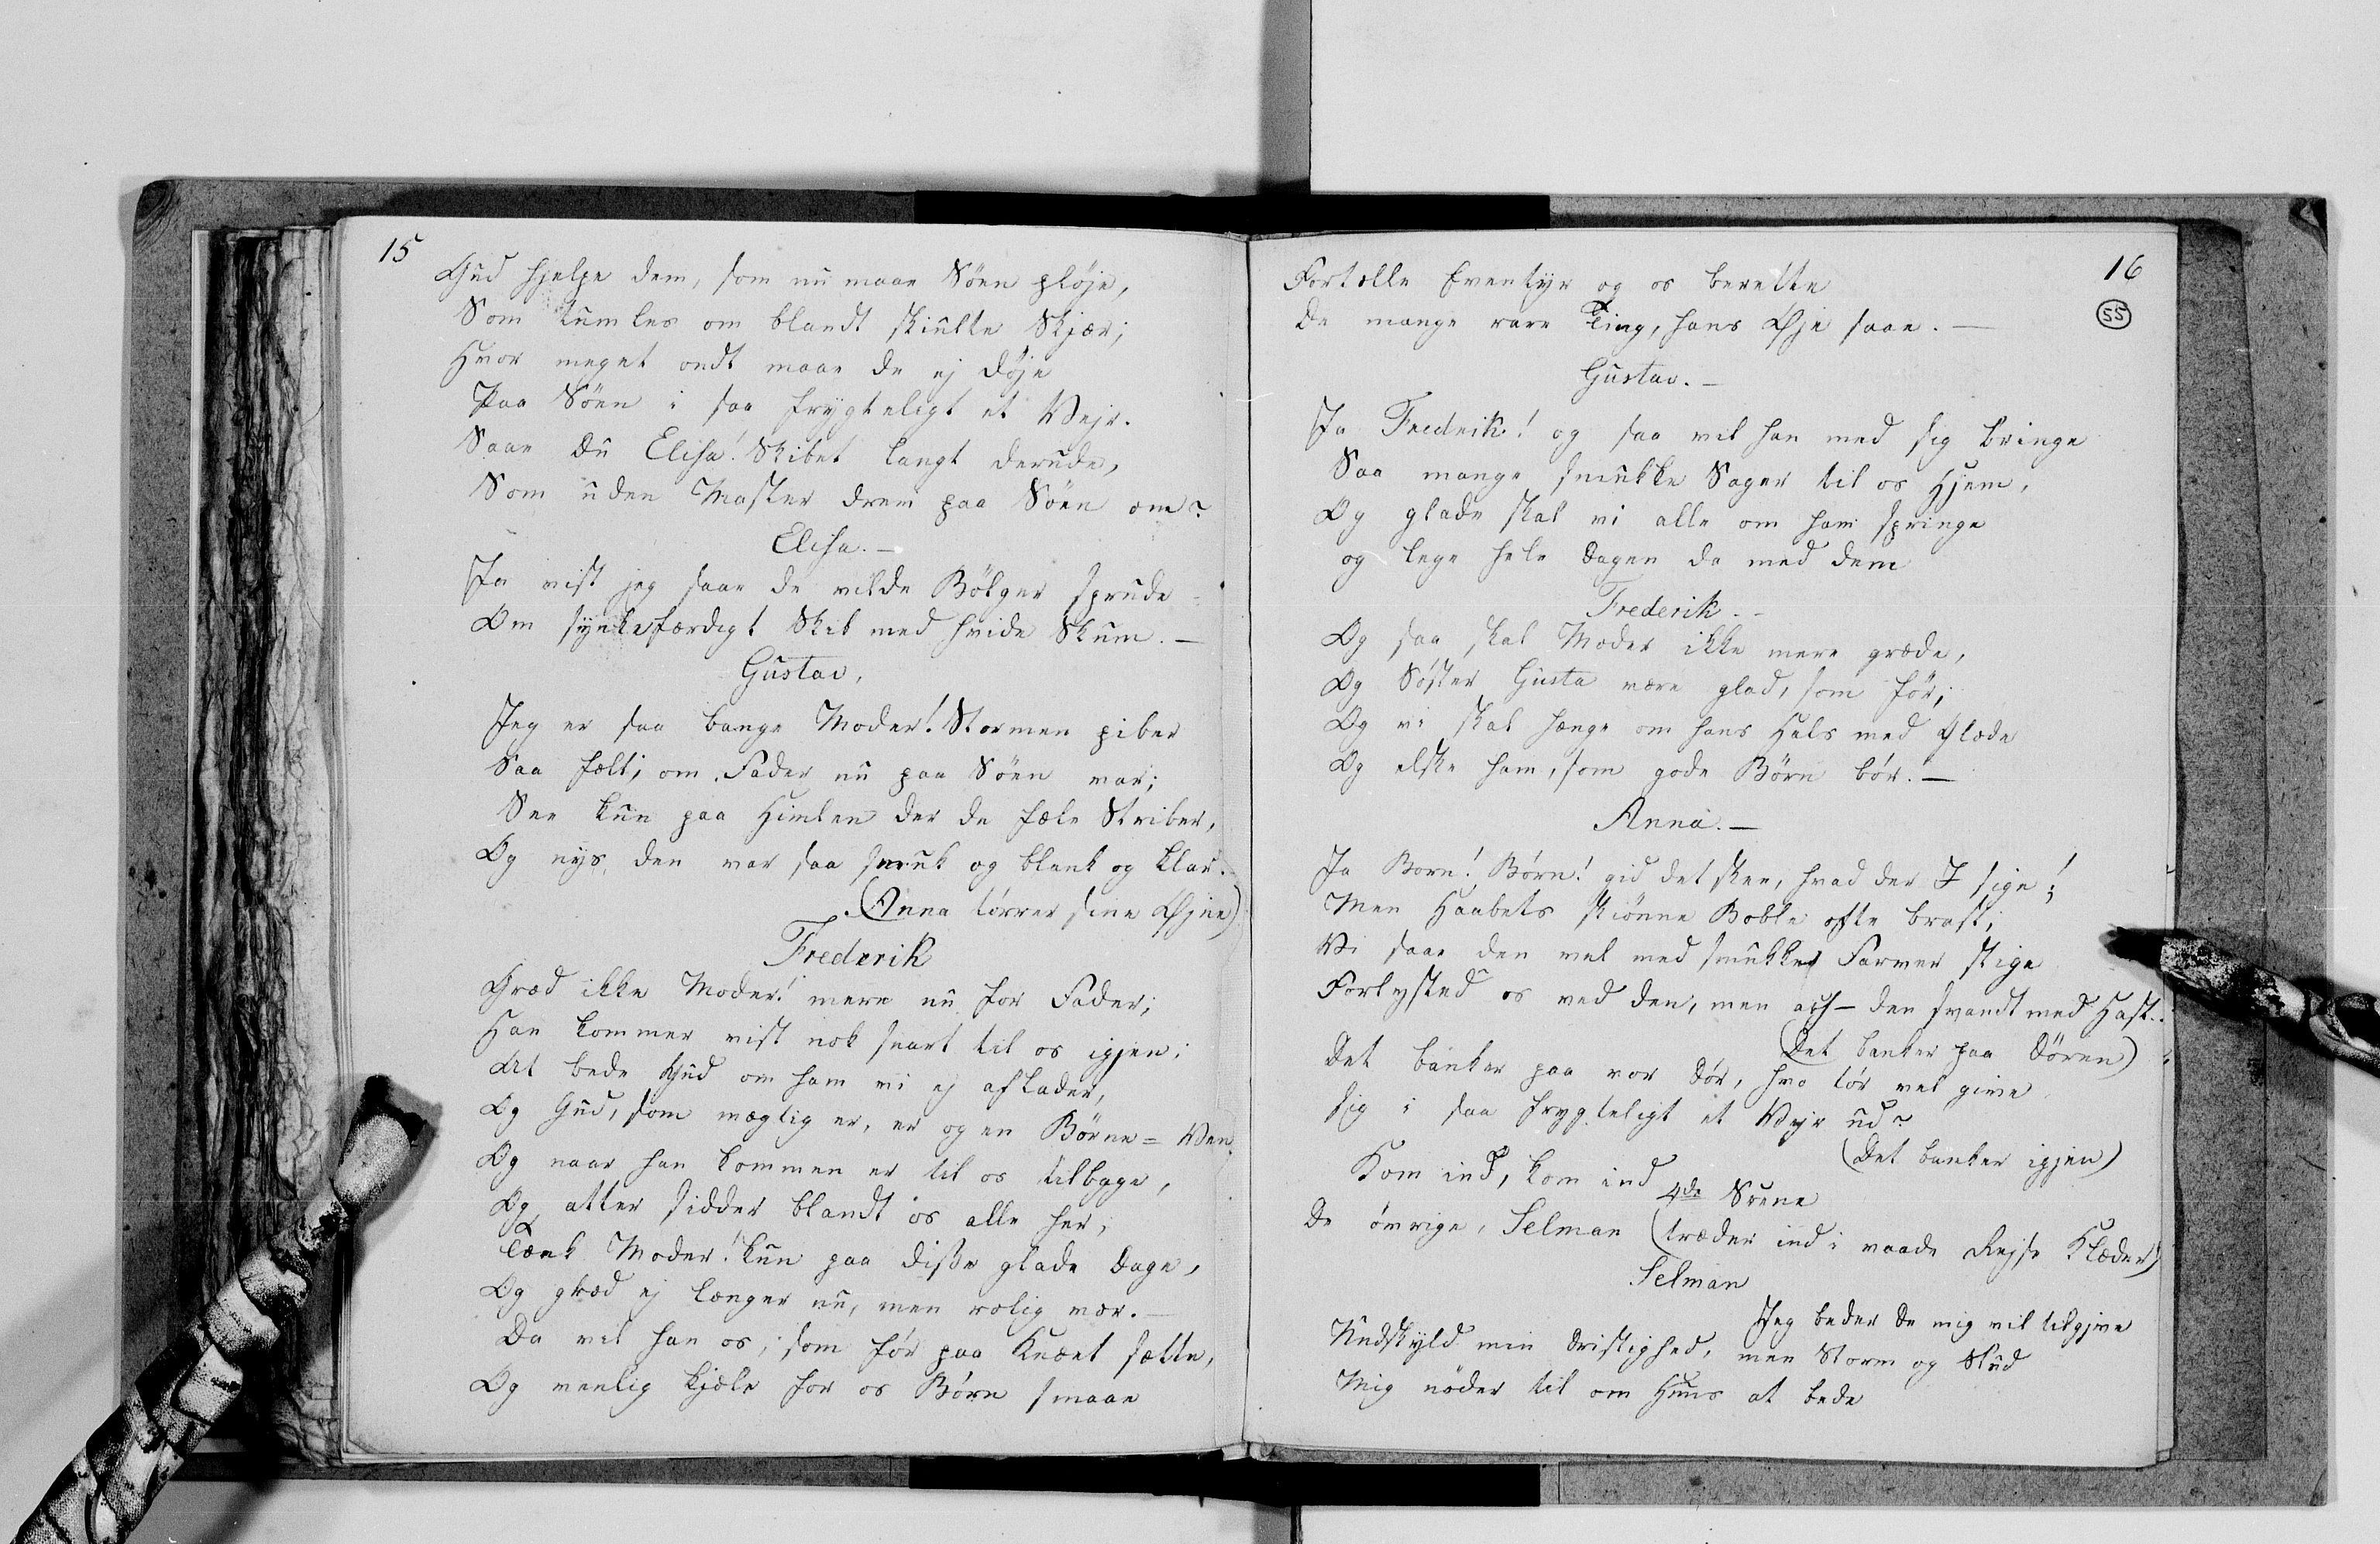 15
Gud hjelpe dem, som nu maae Söen plöje,
Som tumles om blandt skiulte Skjær;
Hvor meget ondt maae de ej döje
Paa Söen i saa frygteligt et Vejr.
Saae Du Elisa! Skibet langt derude,
Som uden Master drev paa Söen om?
Elisa. —
Ja vist jeg saae de vilde Bölger sprude
Om synkefærdigt Skib med hvide Skum. —
Gustav.
Jeg er saa bange Moder! Stormen piber
Saa fælt; om Fader nu paa Söen var;
See kun paa Himlen der de fæle Striber,
Og nys den var saa smuk og blank og klar.
(Anna törrer sine Øjne)
Frederik
Græd ikke Moder! mere nu for Fader;
Han kommer vist nok snart til os igjen;
At bede Gud om ham vi ej aflader,
Og Gud, som mægtig er, er og en Börne=Ven.
Og naar han kommen er til os tilbage,
Og atter sidder blandt os alle her;
Tænk Moder! kun paa disse glade Dage,
Og græd ej længer nu, men rolig vær. —
Da vil han os, som för paa Knæet sætte,
Og venlig kjæle for os Börn smaae
16
55
Fortælle Eventyr og os berette
De mange rare Ting, hans Øje saae. —
Gustav. —
Ja Fredrik! og saa vil han med sig bringe
Saa mange smukke Sager til os Hjem,
Og glade skal vi alle om ham springe
og lege hele Dagen da med dem
Frederik. —
Og saa skal Moder ikke mere græde,
Og Söster Gusta være glad, som för;
Og vi skal hænge om hans Hals med Glæde
Og elske ham, som gode Börn bör. —
Anna. —
Ja Born! Börn! gid det skee, hvad der I sige!;
Men Haabets skiönne Boble ofte brast;
Vi saae den vel med smukke Farver stige
Forlysted os ved den, men ach — den svandt med Hast..
(Det banker paa Dören)
Det banker paa vor Dör, hvo tör vel give
sig i saa frygteligt et Vejr ud?
(Det banker igjen)
Kom ind, kom ind
4de Scene
De övrige, Selman (træder ind i vaade Rejse Klæder)
Selman
Jeg beder De mig vil tilgive
Undskyld min Dristighed, men Storm og Slud
Mig nöder til om Huus at bede